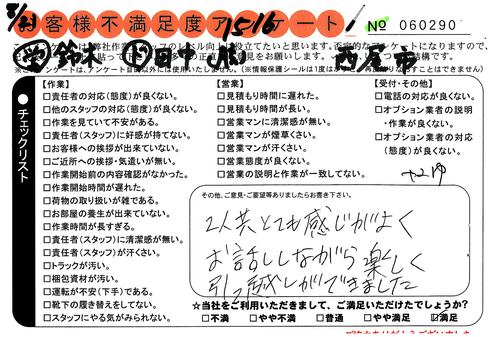 5/21 お客様不満足度アンケート! 1516 № 060290
鈴木 田中 西尾市
【作業】
□責任者の対応(態度)が良くない。
□他のスタッフの対応(態度)が良くない。
□作業を見ていて不安がある。
□責任者(スタッフ)に好感が持てない。
□お客様への挨拶が出来ていない。
□ご近所への挨拶・気遣いが無い。
□作業開始前の内容確認がなかった。
□作業開始時間が遅れた。
□荷物の取り扱いが雑である。
□お部屋の養生が出来ていない。
□作業時間が長すぎる。
□責任者(スタッフ)に清潔感が無い。
□責任者(スタッフ)が汗くさい。
□トラックが汚い。
□梱包資材が汚い。
□運転が不安(下手)である。
□靴下の履き替えをしてない。
□スタッフにやる気がみられない。
【営業】
□見積もり時間に遅れた。
□見積もり時間が長い。
□営業マンに清潔感が無い。
□営業マンが煙草くさい。
□営業マンが汗くさい。
□営業態度が良くない。
□営業の説明と作業が一致してない。
【受付・その他】
□電話の対応が良くない。
□オプション業者の説明・作業が良くない。
□オプション業者の対応(態度)が良くない。
●チェックリスト
その他、ご意見・ご要望等ありましたらお書き下さい。
2人共とても感じがよく
お話ししながら楽しく
引っ越しができました
☆当社をご利用いただきまして、ご満足いただけたでしょうか?
□不満 □やや不満 □普通 □やや満足 ☑満足